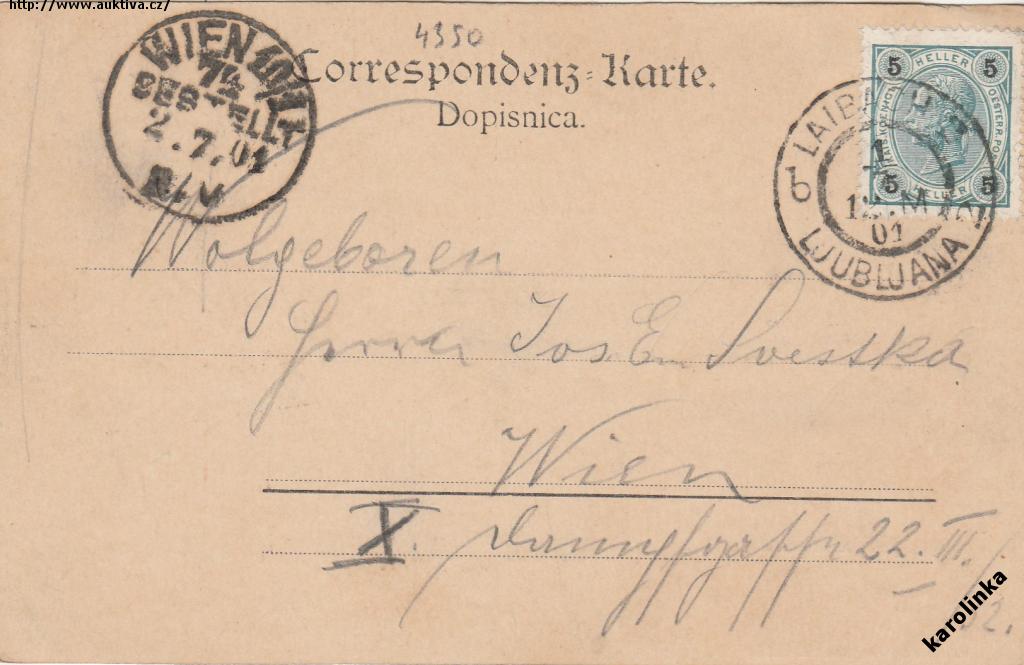 http://www.auktiva.cz/
4350
WIEN 10/1
74
BESTELLT
2.7.01
Correspondenz-Karte.
Dopisnica.
5 HELLER 5
5 HELLER 5
LAIBACH
1
01
LJUBLJANA
Wolgeboren
Herrn Jos. Em Svestka
Wien
X. Dampfgasse 22. III./
32.
karolinka